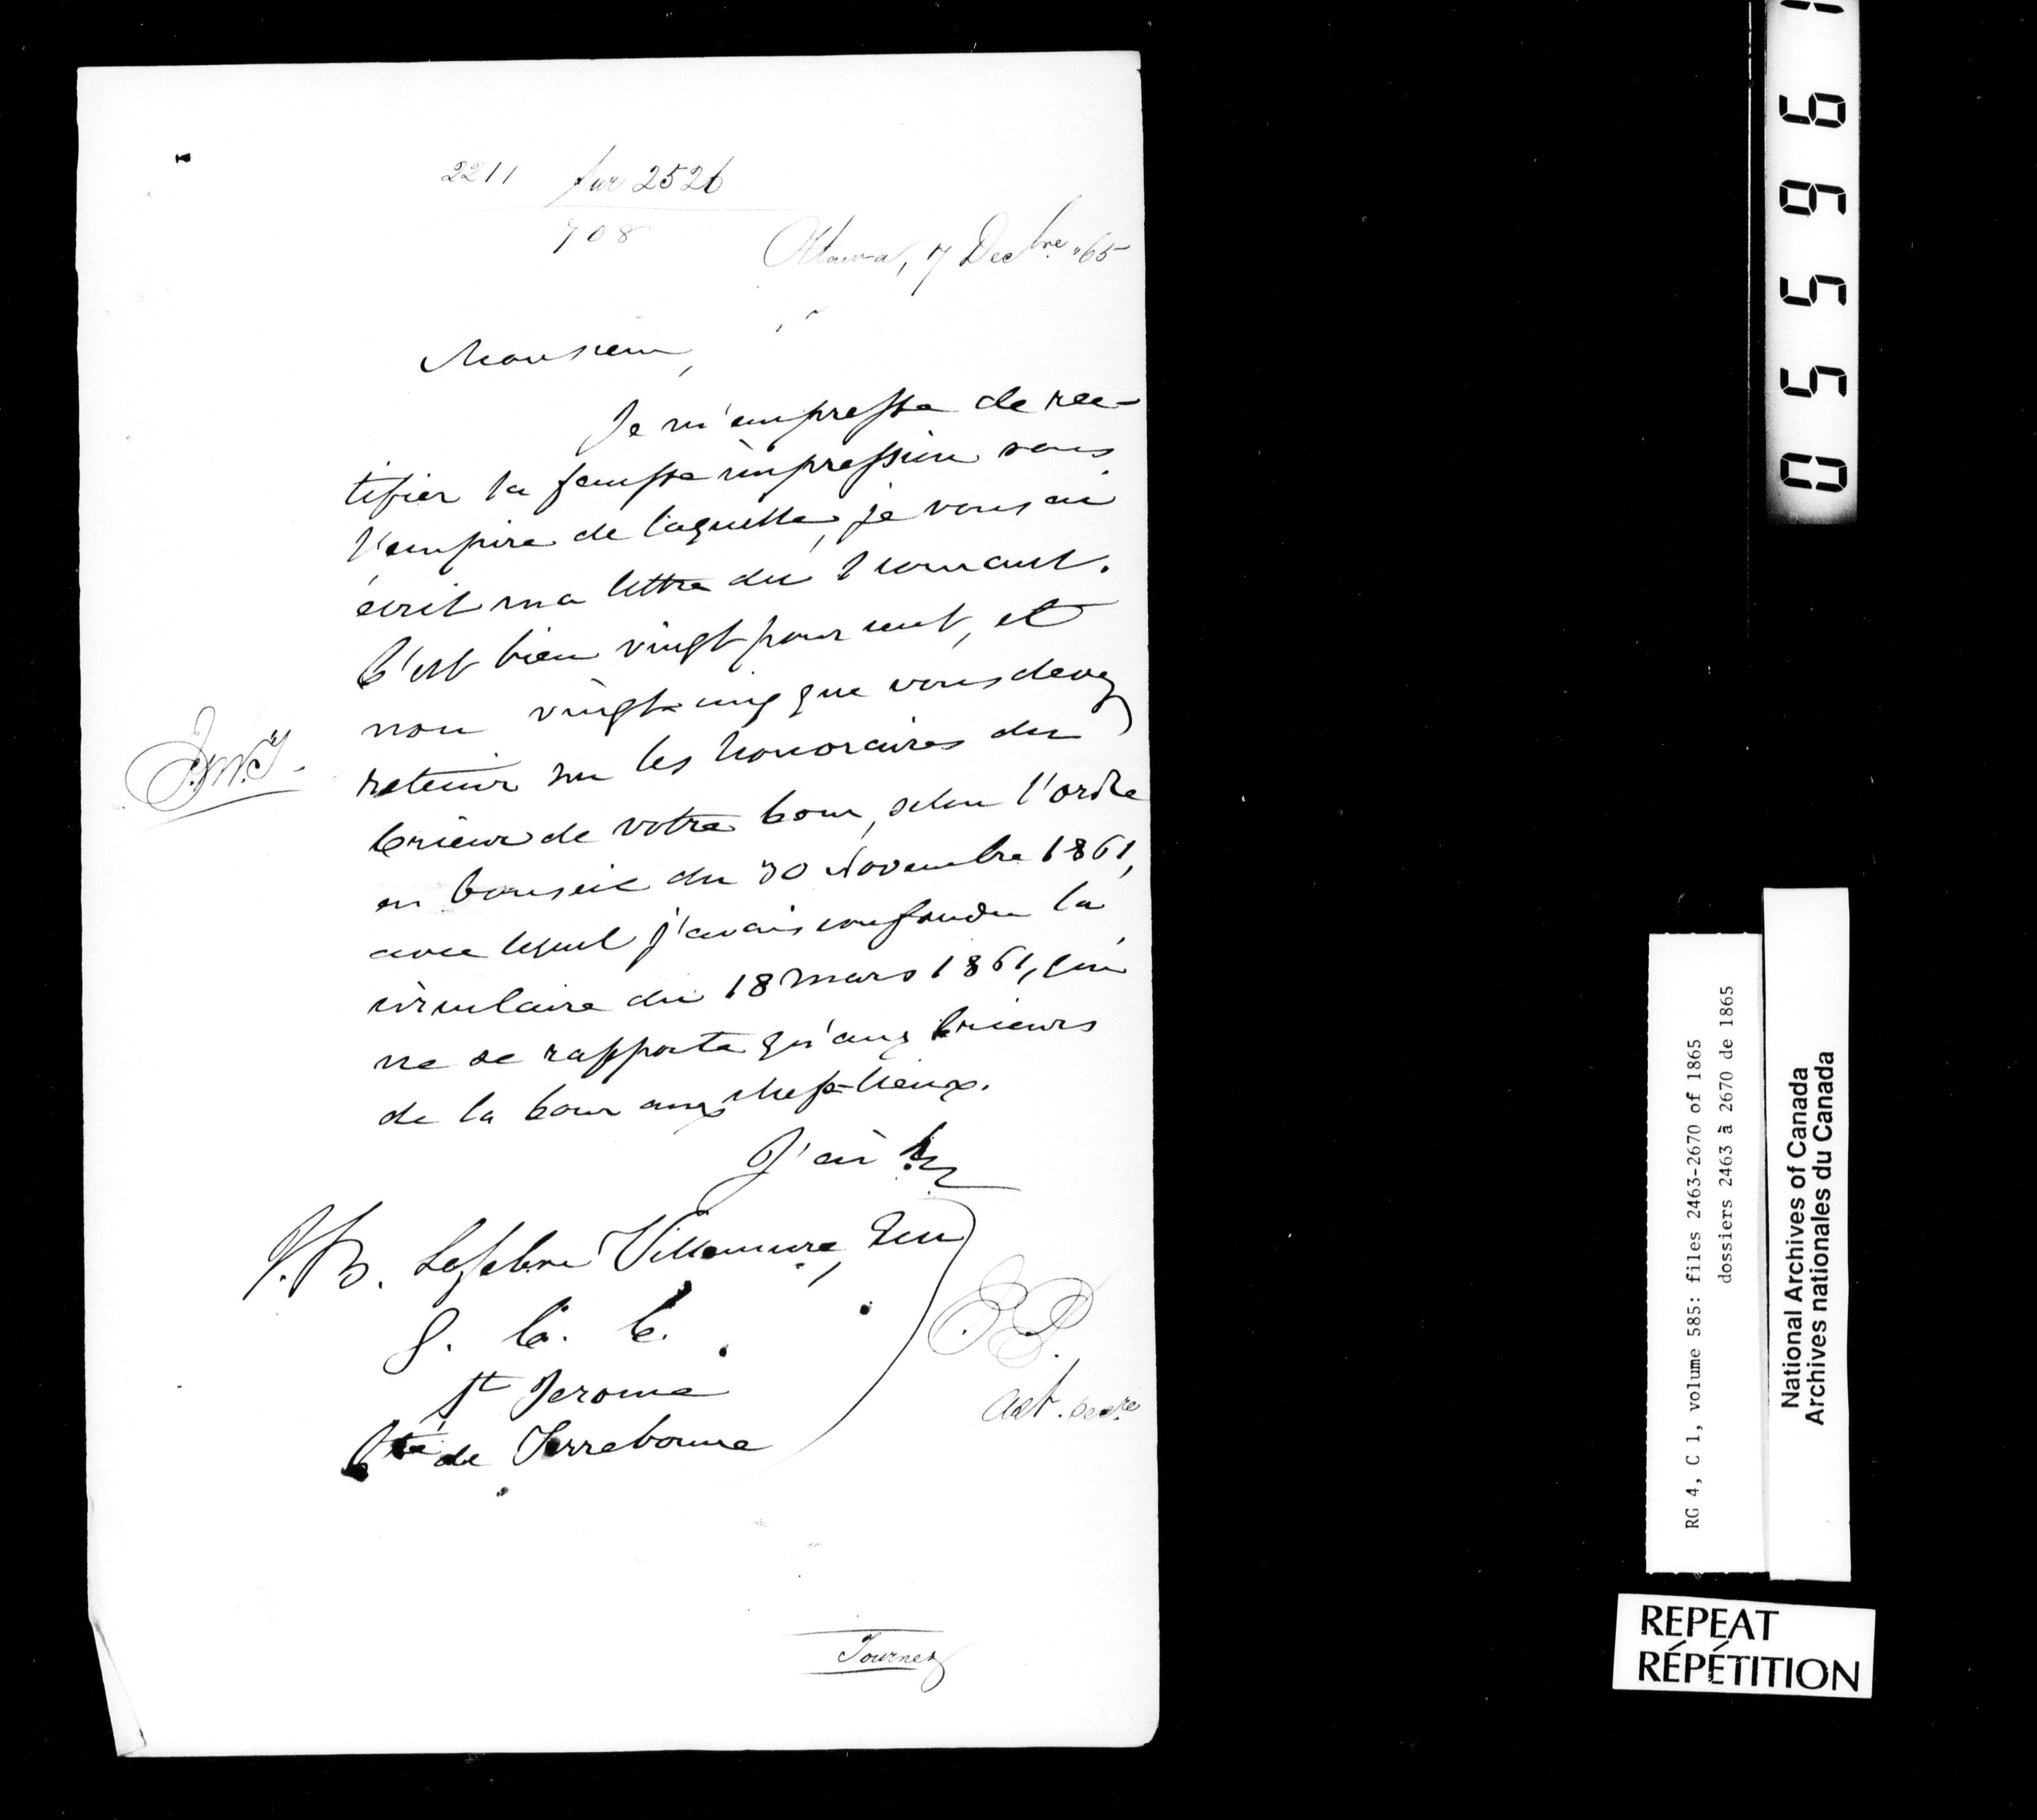 2211 sur 2526
708
Ottawa, 7 Decbre. "65
Monsieur,
Je m'empresse de rec-
tifier la fausse impression sous
l'empire de laquelle, je vous ai
écrit ma lettre du 1 courant.
C'est bien vingt pour cent, et
non vingt-cinq que vous devez
retenir sur les honoraires du
Crieur de votre Cour, selon l'ordre
en Conseil du 30 Novembre 1861,
avec lequel j'avais confondu la
circulaire du 18 mars 1861, qui
ne se rapporte qu'aux Crieurs
de la Cour aux chefs-lieux.
J'ai
J.B. Lefebvre Villemure, Ecu
G. C. C.
St Jerome
Cté de Terrebonne
E P.
Act. Secre
Tournez
055961
RG 4, C 1, volume 585: files 2463-2670 of 1865
dossiers 2463 à 2670 de 1865
National Archives of Canada
Archives nationales du Canada
REPEAT
RÉPÉTITION